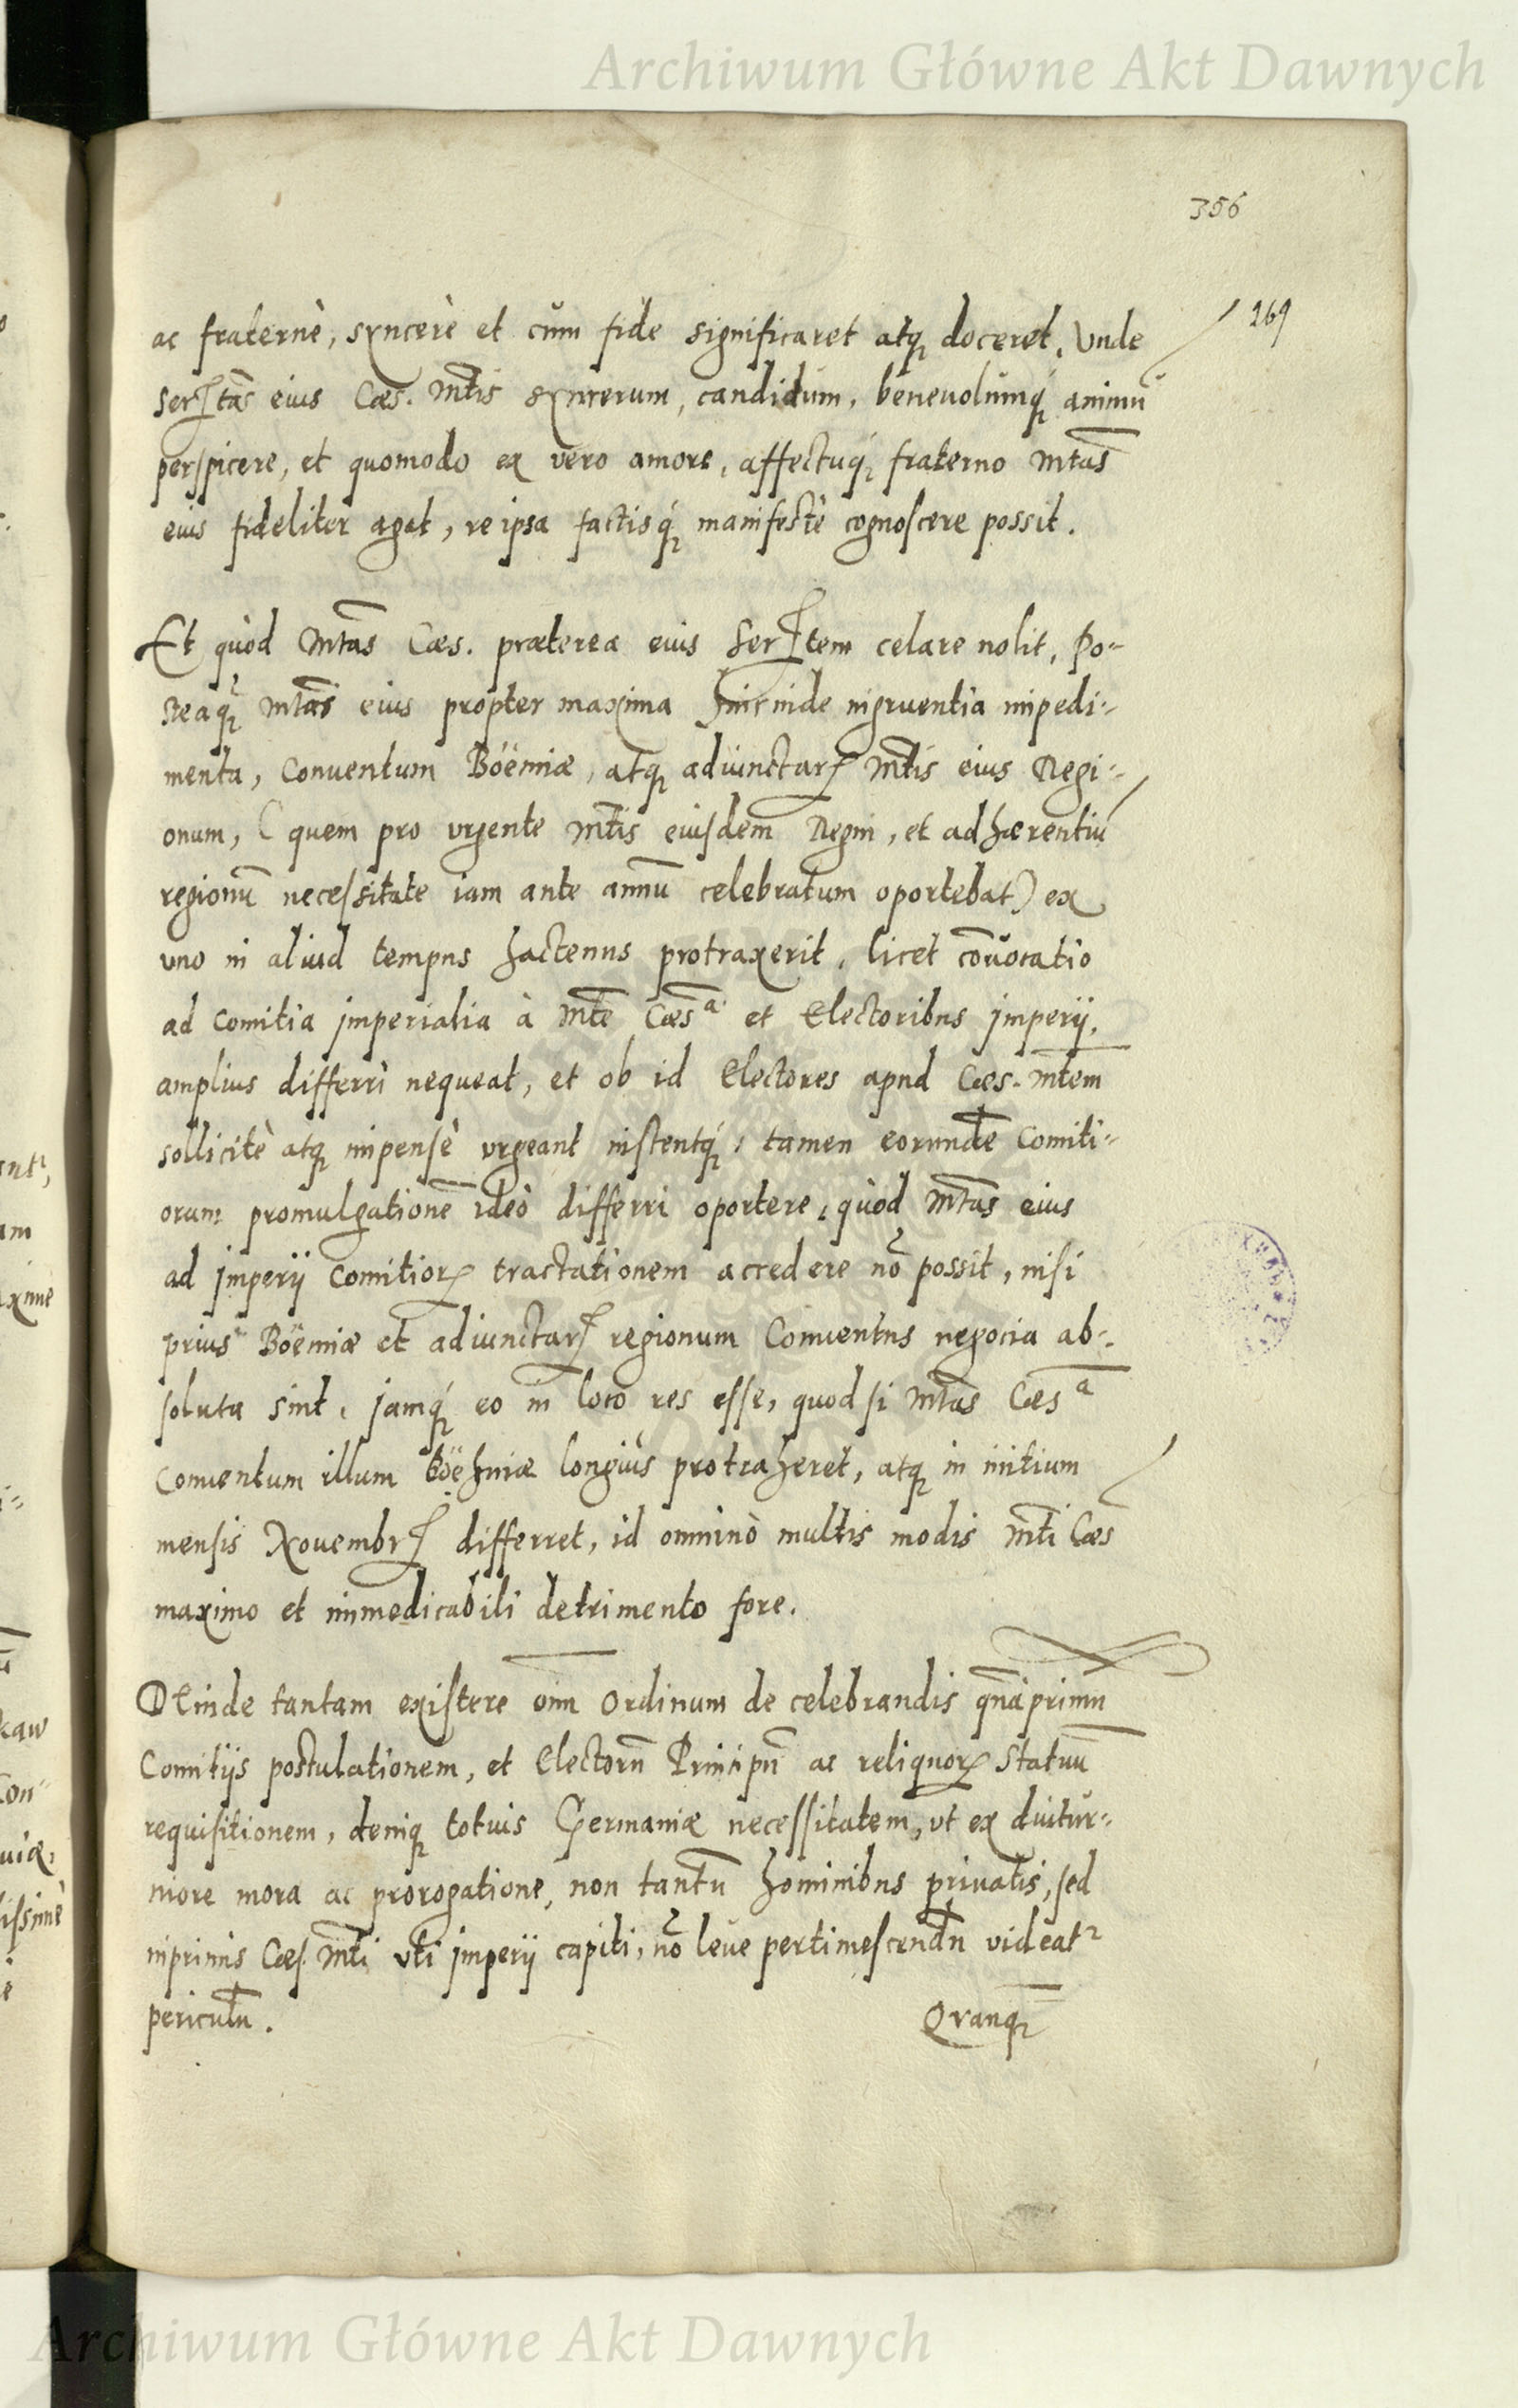 Archiwum Główne Akt Dawnych
356
169
ac fraternè, syncerè et cùm fide significaret atq; doceret, Vnde
Ser.tas eius Cæs. Mtis syncerum, candidùm, beneuolùmq; animũ
perspicere, et quomodo ex vero amore, affectuq; fraterno Mtas
eius fideliter agat, re ipsa factisq; manifestè cognoscere possit.
Et quòd Mtas Cæs. præterea eius Ser.tem celare nolit, Po-
steaq; Mtas eius propter maxima hinc inde ingruentia impedi-
menta, Conuentum Böemiæ, atq; adiunctar. Mtis eius Regi-
onum, (quem pro vrgente Mtis eiusdem Regni, et adhærentiũ
regionũ necessitate iam ante annũ celebratum oportebat) ex
vno in aliud tempus hactenus protraxerit, licet cõuocatio
ad Comitia jmperialia à Mte Cæs.a et Electoribus jmperij,
amplius differri nequeat, et ob id Electores apud Cæs. Mtem
sollicitè atq; impensè vrgeant instentq;, tamen eorundẽ Comiti-
orum promulgationẽ ideò differri oportere, quòd Mtas eius
ad jmperij Comitior. tractationem accedere nõ possit, nisi
prius Böemiæ et adiunctar. regionum Conuentus negocia ab-
soluta sint, jamq; eo in loco res esse, quod si Mtas Cæs.a
Conuentum illum Böehmiæ longiùs protraheret, atq; in initium
mensis Nouembr. differret, id omninò multis modis Mti Cæs
maximo et immedicabili detrimento fore.
DEinde tantam existere om̃ Ordinum de celebrandis quàprimũ
Comitijs postulationem, et Electorũ Principũ ac reliquor. Statuũ
requisitionem, deniq; totius Germaniæ necessitatem, vt ex diutur-
niore mora ac prorogatione, non tantũ hominibus priuatis, sed
inprimis Cæs. Mti vti jmperij capiti, nõ leue pertimescendũ videat.
periculũ.
Qvanq;
Archiwum Główne Akt Dawnych